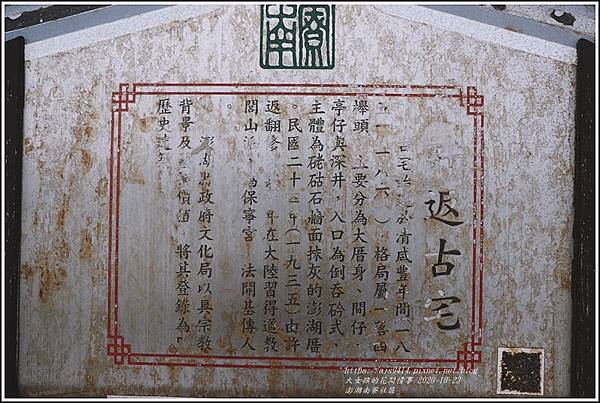 南寮
返占宅
清咸豐年間(一八
一一一八六)格局屬一落四
櫸頭要分為大厝身、間仔
亭仔與深井,入口為倒吞砛式,
主體為硓𥑮石牆面抹灰的澎湖厝
。民國二十年(一九三五)由許
返翻修年在大陸習得道教
閭山派保寧宮法開基傳人
。
政府文化局以具宗教
背景及價值將其登錄為「
歷史建
https://ajs9414.pixnet.net/blog
大女孩的花開情事 2020-10-23
澎湖南寮社區